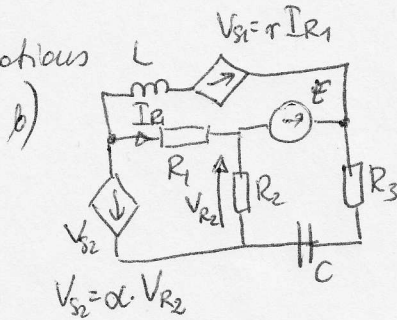 V_{S1} = r I_{R1}
L
b)
I_{R1}
E
R_1
V_{R2}
R_2
R_3
V_{S2}
C
V_{S2} = α · V_{R2}